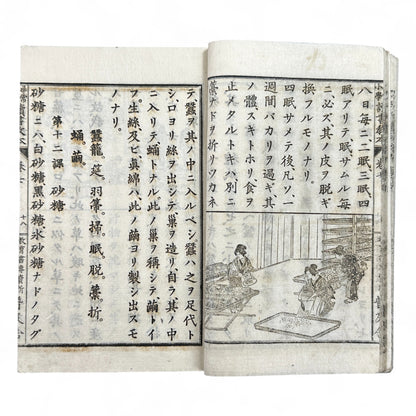 八日每ニ二眠三眠四
眠アリテ眠サムル每
ニ、必ズ其ノ皮ヲ脱ギ
換フルモノナリ。
四眠サメテ後凡ソ一
週ヲ過ギ其
ノ體、スキトホリ食ヲ
正メタルトキハ別ニ
藁ナドヲ折リツカネ
テ、蠶ヲ其ノ中ニ入ルベシ。蠶ハ之ヲ足代ト
シ、口ヨリ絲ヲ出シテ巢ヲ造リ自ラ其ノ中
ニ入リテ蛹トナル此ノ巢ヲ稱シテ繭トイ
フ。生絲及ビ眞綿ハ此ノ繭ヨリ製シ出スモ
ノナリ。
蠶籠。莚。羽箒。掃。眠。脱。藁。折。
蛹。繭。
第十二課 砂糖
砂糖ニハ、白砂糖黑砂糖氷砂糖ナドノタグ